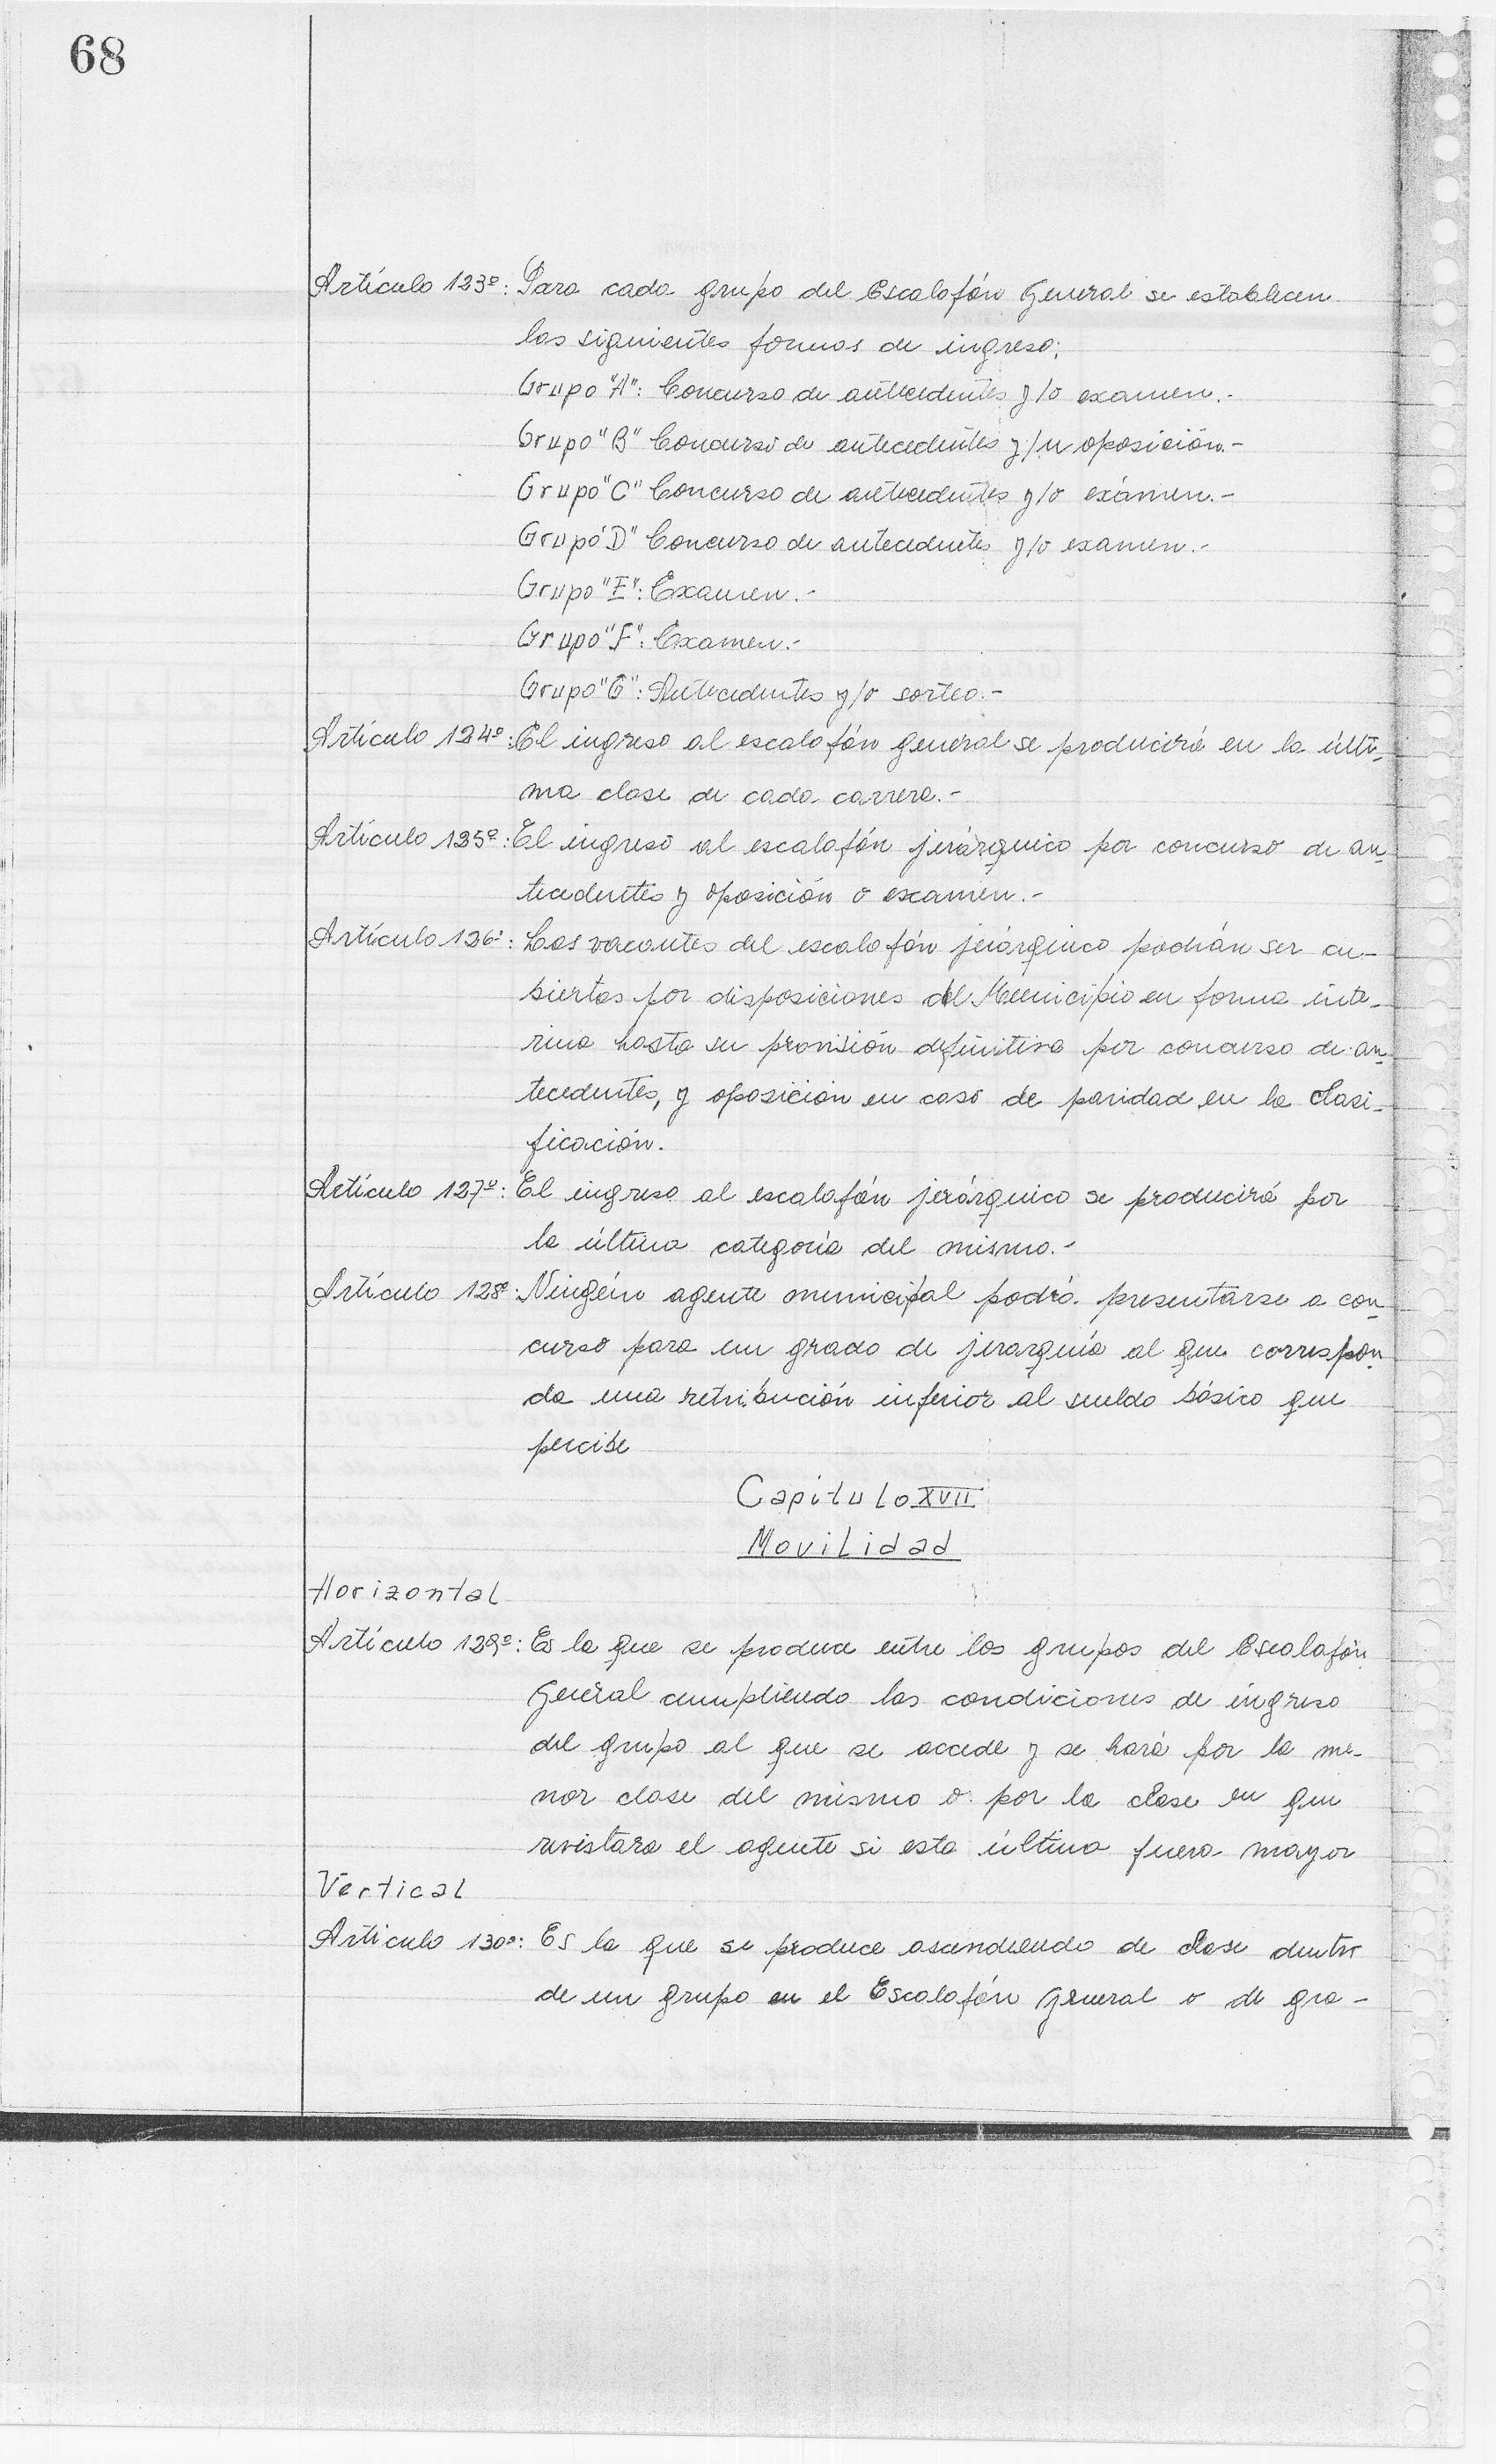 68
Artículo 123º: Para cada grupo del Escalafón General se establecen
las siguientes formas de ingreso:
Grupo "A": Concurso de antecedentes y/o examen.-
Grupo "B" Concurso de antecedentes y/u oposición.-
Grupo "C" Concurso de antecedentes y/o exámen.-
Grupo "D" Concurso de antecedentes y/o examen.-
Grupo "E": Examen.-
Grupo "F": Examen.-
Grupo "G": Antecedentes y/o sorteo.-
Artículo 124º: El ingreso al escalafón general se producirá en la últi-
ma clase de cada carrera.-
Artículo 125º: El ingreso al escalafón jerárquico por concurso de an-
tecedentes y oposición o examen.-
Artículo 126º: Las vacantes del escalafón jerárquico podrán ser cu-
biertas por disposiciones del Municipio en forma inte-
rina hasta su provisión definitiva por concurso de an-
tecedentes, y oposición en caso de paridad en la clasi-
ficación.
Artículo 127º: El ingreso al escalafón jerárquico se producirá por
la última categoría del mismo.-
Artículo 128º: Ningún agente municipal podrá presentarse a con-
curso para un grado de jerarquía al que correspon-
da una retribución inferior al sueldo básico que
percibe
Capítulo XVII
Movilidad
Horizontal
Artículo 129º: Es la que se produce entre los grupos del Escalafón
General cumpliendo las condiciones de ingreso
del grupo al que se accede y se hará por la me-
nor clase del mismo o por la clase en que
revistara el agente si esta última fuera mayor
Vertical
Artículo 130º: Es la que se produce ascendiendo de clase dentro
de un grupo en el Escalafón General o de gra-